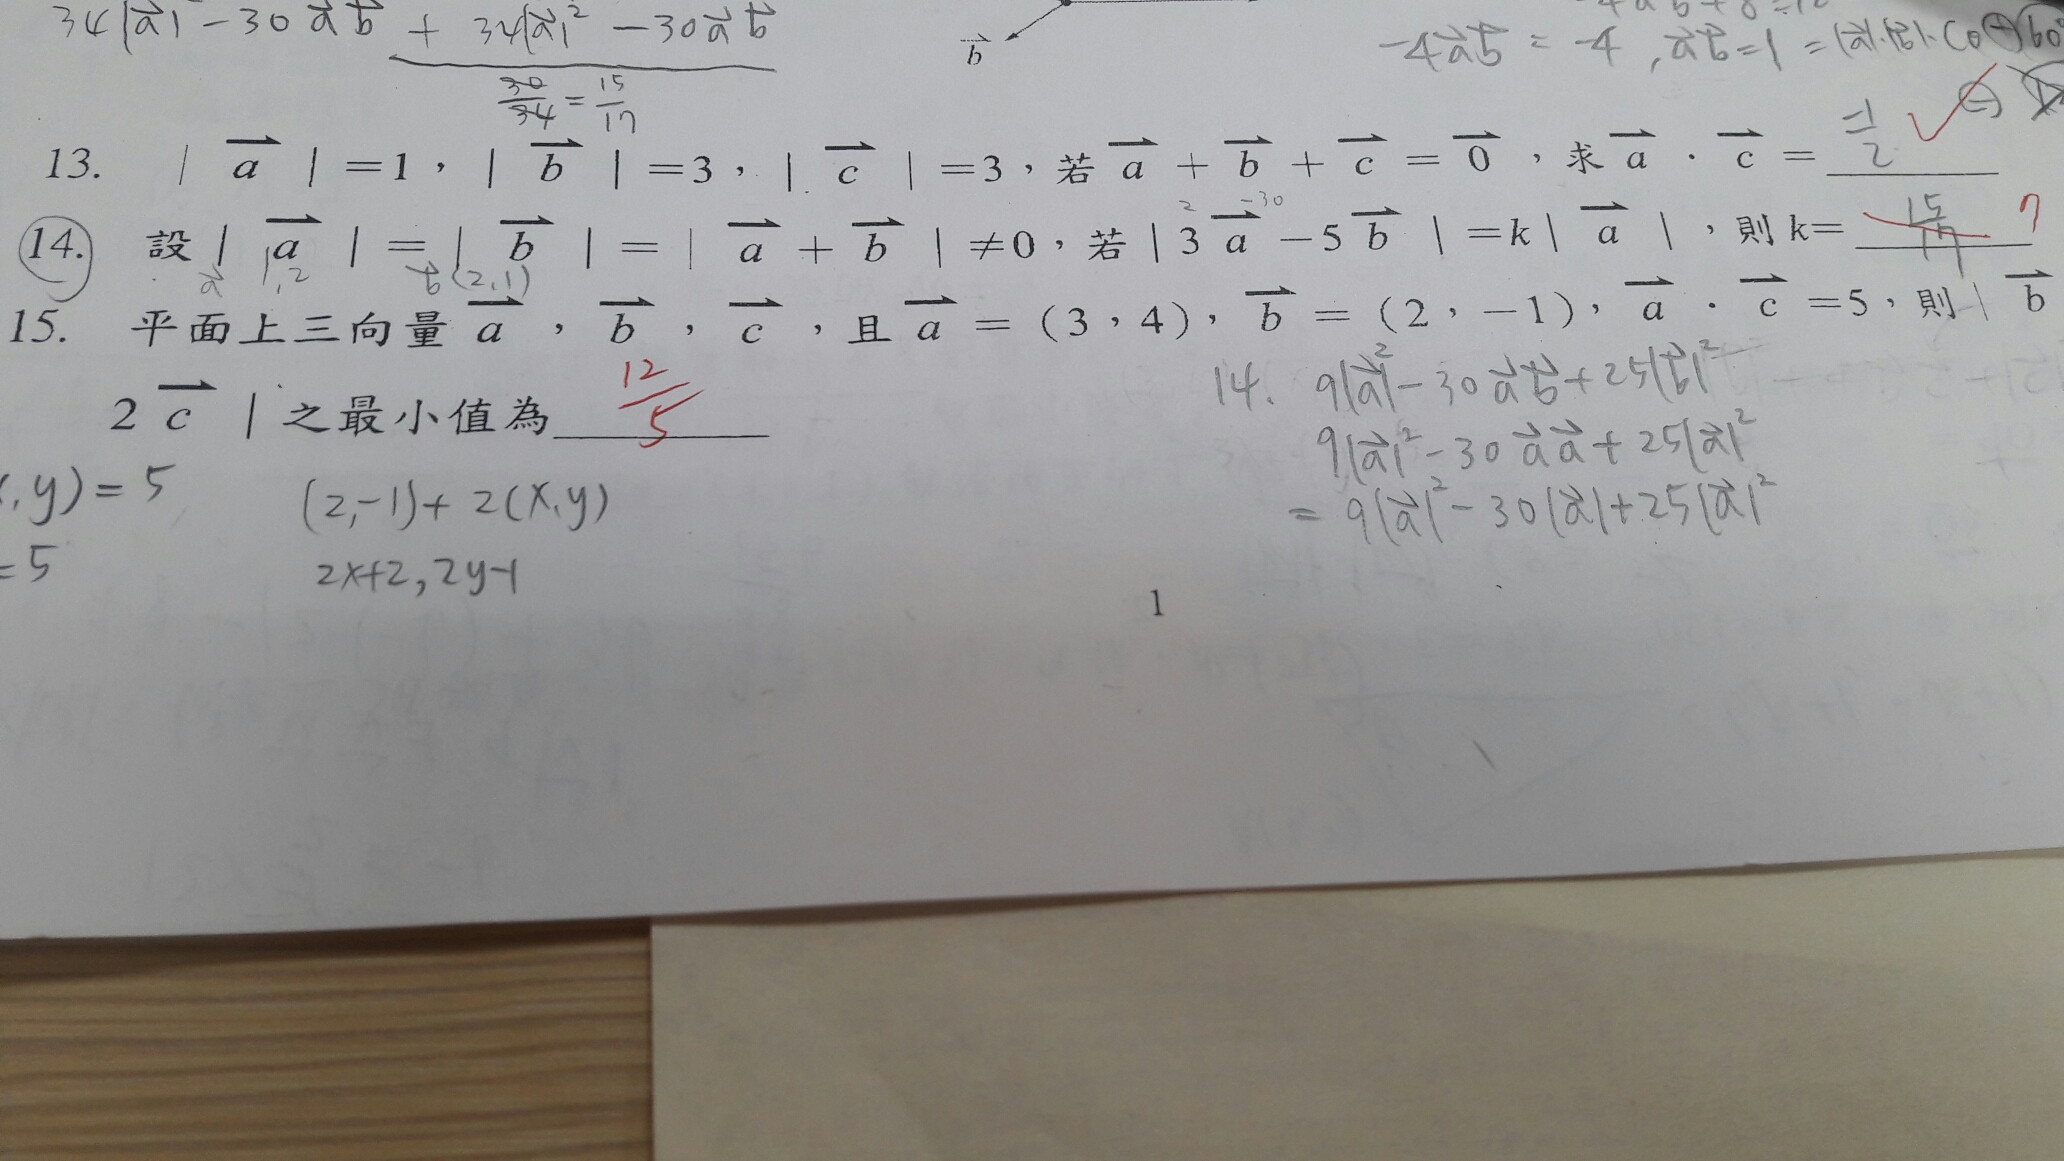 34|a⃗| - 30a⃗b⃗ + 34|a⃗|² - 30a⃗b⃗
30/34 = 15/17
b⃗
-4a⃗b⃗ = -4 , a⃗b⃗ = 1 = |a⃗|·|b⃗|·
13. | a⃗ | =1,| b⃗ | =3,| c⃗ | =3,若 a⃗ + b⃗ + c⃗ = 0⃗ ,求 a⃗ · c⃗ = -1/2
14. 設 | a⃗ | = | b⃗ | = | a⃗ + b⃗ | ≠0,若 | 3 a⃗ -5 b⃗ | =k | a⃗ | ,則 k= 15/17 7
2 -30
a⃗ 1,2 b⃗ (2,1)
15. 平面上三向量 a⃗ , b⃗ , c⃗ ,且 a⃗ = (3,4), b⃗ = (2,-1), a⃗ · c⃗ =5,則 | b⃗
2 c⃗ | 之最小值為 12/5
,y) = 5
= 5
(2,-1)+ 2(x,y)
2x+2, 2y-1
14. 9|a⃗|² - 30a⃗b⃗ + 25|b⃗|²
9|a⃗|² - 30a⃗a⃗ + 25|a⃗|²
= 9|a⃗|² - 30|a⃗| + 25|a⃗|²
1